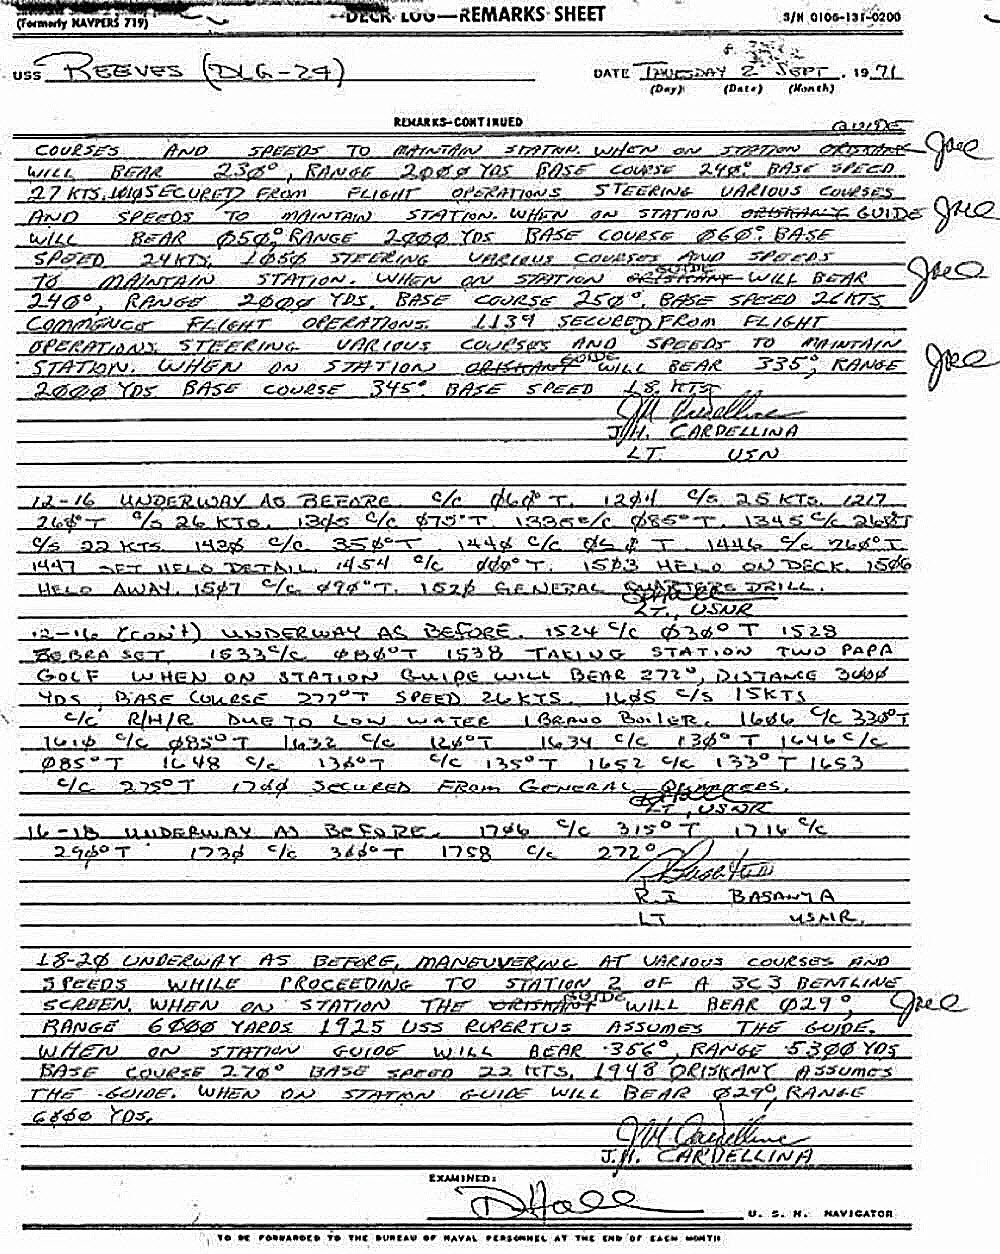 (Formerly NAVPERS 719)
DECK LOG—REMARKS SHEET
S/N 0106-131-0200
USS REEVES (DLG-24)
DATE THURSDAY 2 SEPT , 1971
(Day) (Date) (Month)
REMARKS-CONTINUED
GUIDE
COURSES AND SPEEDS TO MAINTAIN STATION. WHEN ON STATION ORISKANY
WILL BEAR 230°, RANGE 2000 YDS BASE COURSE 240° BASE SPEED
27 KTS. SECURED FROM FLIGHT OPERATIONS STEERING VARIOUS COURSES
AND SPEEDS TO MAINTAIN STATION. WHEN ON STATION ORISKANY GUIDE
WILL BEAR Ø5Ø°, RANGE 2000 YDS BASE COURSE Ø6Ø°. BASE
SPEED 24 KTS. 1050 STEERING VARIOUS COURSES AND SPEEDS
TO MAINTAIN STATION. WHEN ON STATION ORISKANY GUIDE WILL BEAR
240°, RANGE 2000 YDS. BASE COURSE 250°. BASE SPEED 26 KTS
COMMENCE FLIGHT OPERATIONS. 1139 SECURED FROM FLIGHT
OPERATIONS. STEERING VARIOUS COURSES AND SPEEDS TO MAINTAIN
STATION. WHEN ON STATION ORISKANY GUIDE WILL BEAR 335°, RANGE
2000 YDS BASE COURSE 345° BASE SPEED 18 KTS
J.H. CARDELLINA
LT. USN
12-16 UNDERWAY AS BEFORE. C/C Ø6Ø° T. 1204 C/S 25 KTS. 1217
260°T C/S 26 KTS. 1305 C/C Ø75°T. 1335 C/C Ø85°T. 1345 C/C 268T
C/S 22 KTS. 1420 C/C 350°T 1440 C/C T. 1446 C/C 260°T
1447 SET HELO DETAIL. 1454 C/C ØØØ°T. 1503 HELO ON DECK. 1506
HELO AWAY. 1507 C/C Ø90°T. 1520 GENERAL QUARTERS DRILL.
LT., USNR
12-16 (CON'T) UNDERWAY AS BEFORE. 1524 C/C Ø30°T 1528
ZEBRA SET. 1533 C/C Ø80°T 1538 TAKING STATION TWO PAPA
GOLF WHEN ON STATION GUIDE WILL BEAR 272°, DISTANCE 3000
YDS, BASE COURSE 277°T SPEED 26 KTS. 1605 C/S 15 KTS
C/C R/H/R DUE TO LOW WATER 1 BRAVO BOILER. 1606 C/C 330°T
1610 C/C Ø85°T 1632 C/C 120°T 1634 C/C 130°T 1646 C/C
Ø85°T 1648 C/C 130°T C/C 135°T 1652 C/C 133°T 1653
C/C 275°T 1700 SECURED FROM GENERAL QUARTERS.
LT, USNR
16-18 UNDERWAY AS BEFORE. 1706 C/C 315°T 1716 C/C
290°T 1730 C/C 300°T 1758 C/C 272°
R.I BASANTA
LT USNR.
18-2Ø UNDERWAY AS BEFORE, MANEUVERING AT VARIOUS COURSES AND
SPEEDS WHILE PROCEEDING TO STATION 2 OF A 3C3 BENTLINE
SCREEN. WHEN ON STATION THE ORISKANY GUIDE WILL BEAR Ø29°,
RANGE 6000 YARDS 1925 USS RUPERTUS ASSUMES THE GUIDE.
WHEN ON STATION GUIDE WILL BEAR 356°, RANGE 5300 YDS
BASE COURSE 270° BASE SPEED 22 KTS. 1948 ORISKANY ASSUMES
THE GUIDE. WHEN ON STATION GUIDE WILL BEAR Ø29°, RANGE
6000 YDS.
J.H. CARDELLINA
EXAMINED:
D Hall
U. S. N. NAVIGATOR
TO BE FORWARDED TO THE BUREAU OF NAVAL PERSONNEL AT THE END OF EACH MONTH